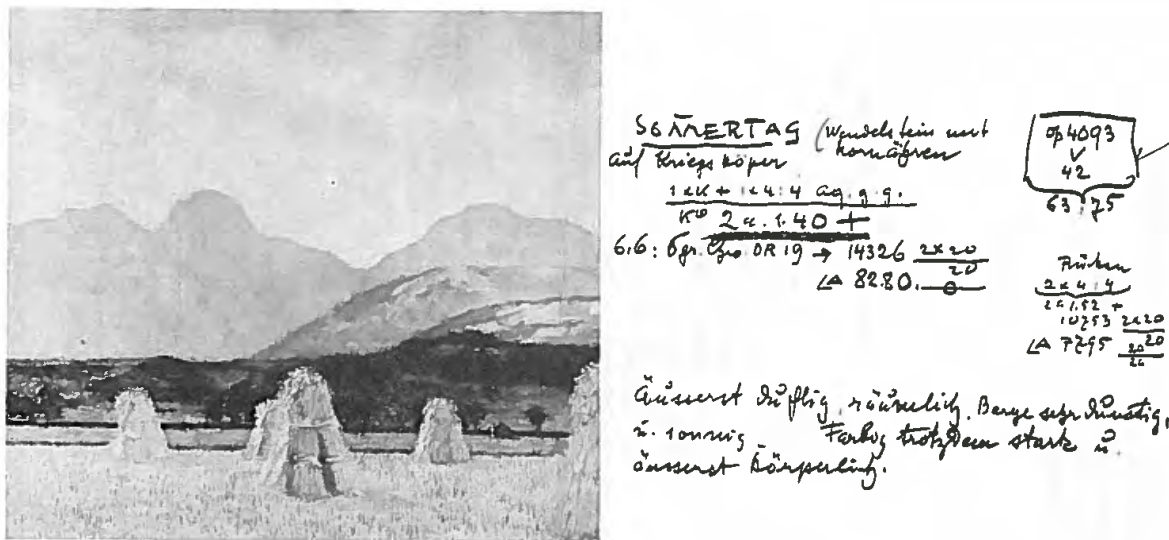 SOMMERTAG (Wendelstein mit
Kornähren
auf Kriegsköper
1xK + 1x4:4 ag. g. g.
2x.1.40 +
6.6: Ggr. DR 19 → 14326 2x20
20
LA 82.80.
op 4093
42
63:75
Rücken
2x4:4
2x1.52 +
10753 2x20
LA 7795 20 20
Äusserst duftig, räumlich. Berge sehr dunstig,
u. sonnig Farbig trotzdem stark u.
äusserst körperlich.